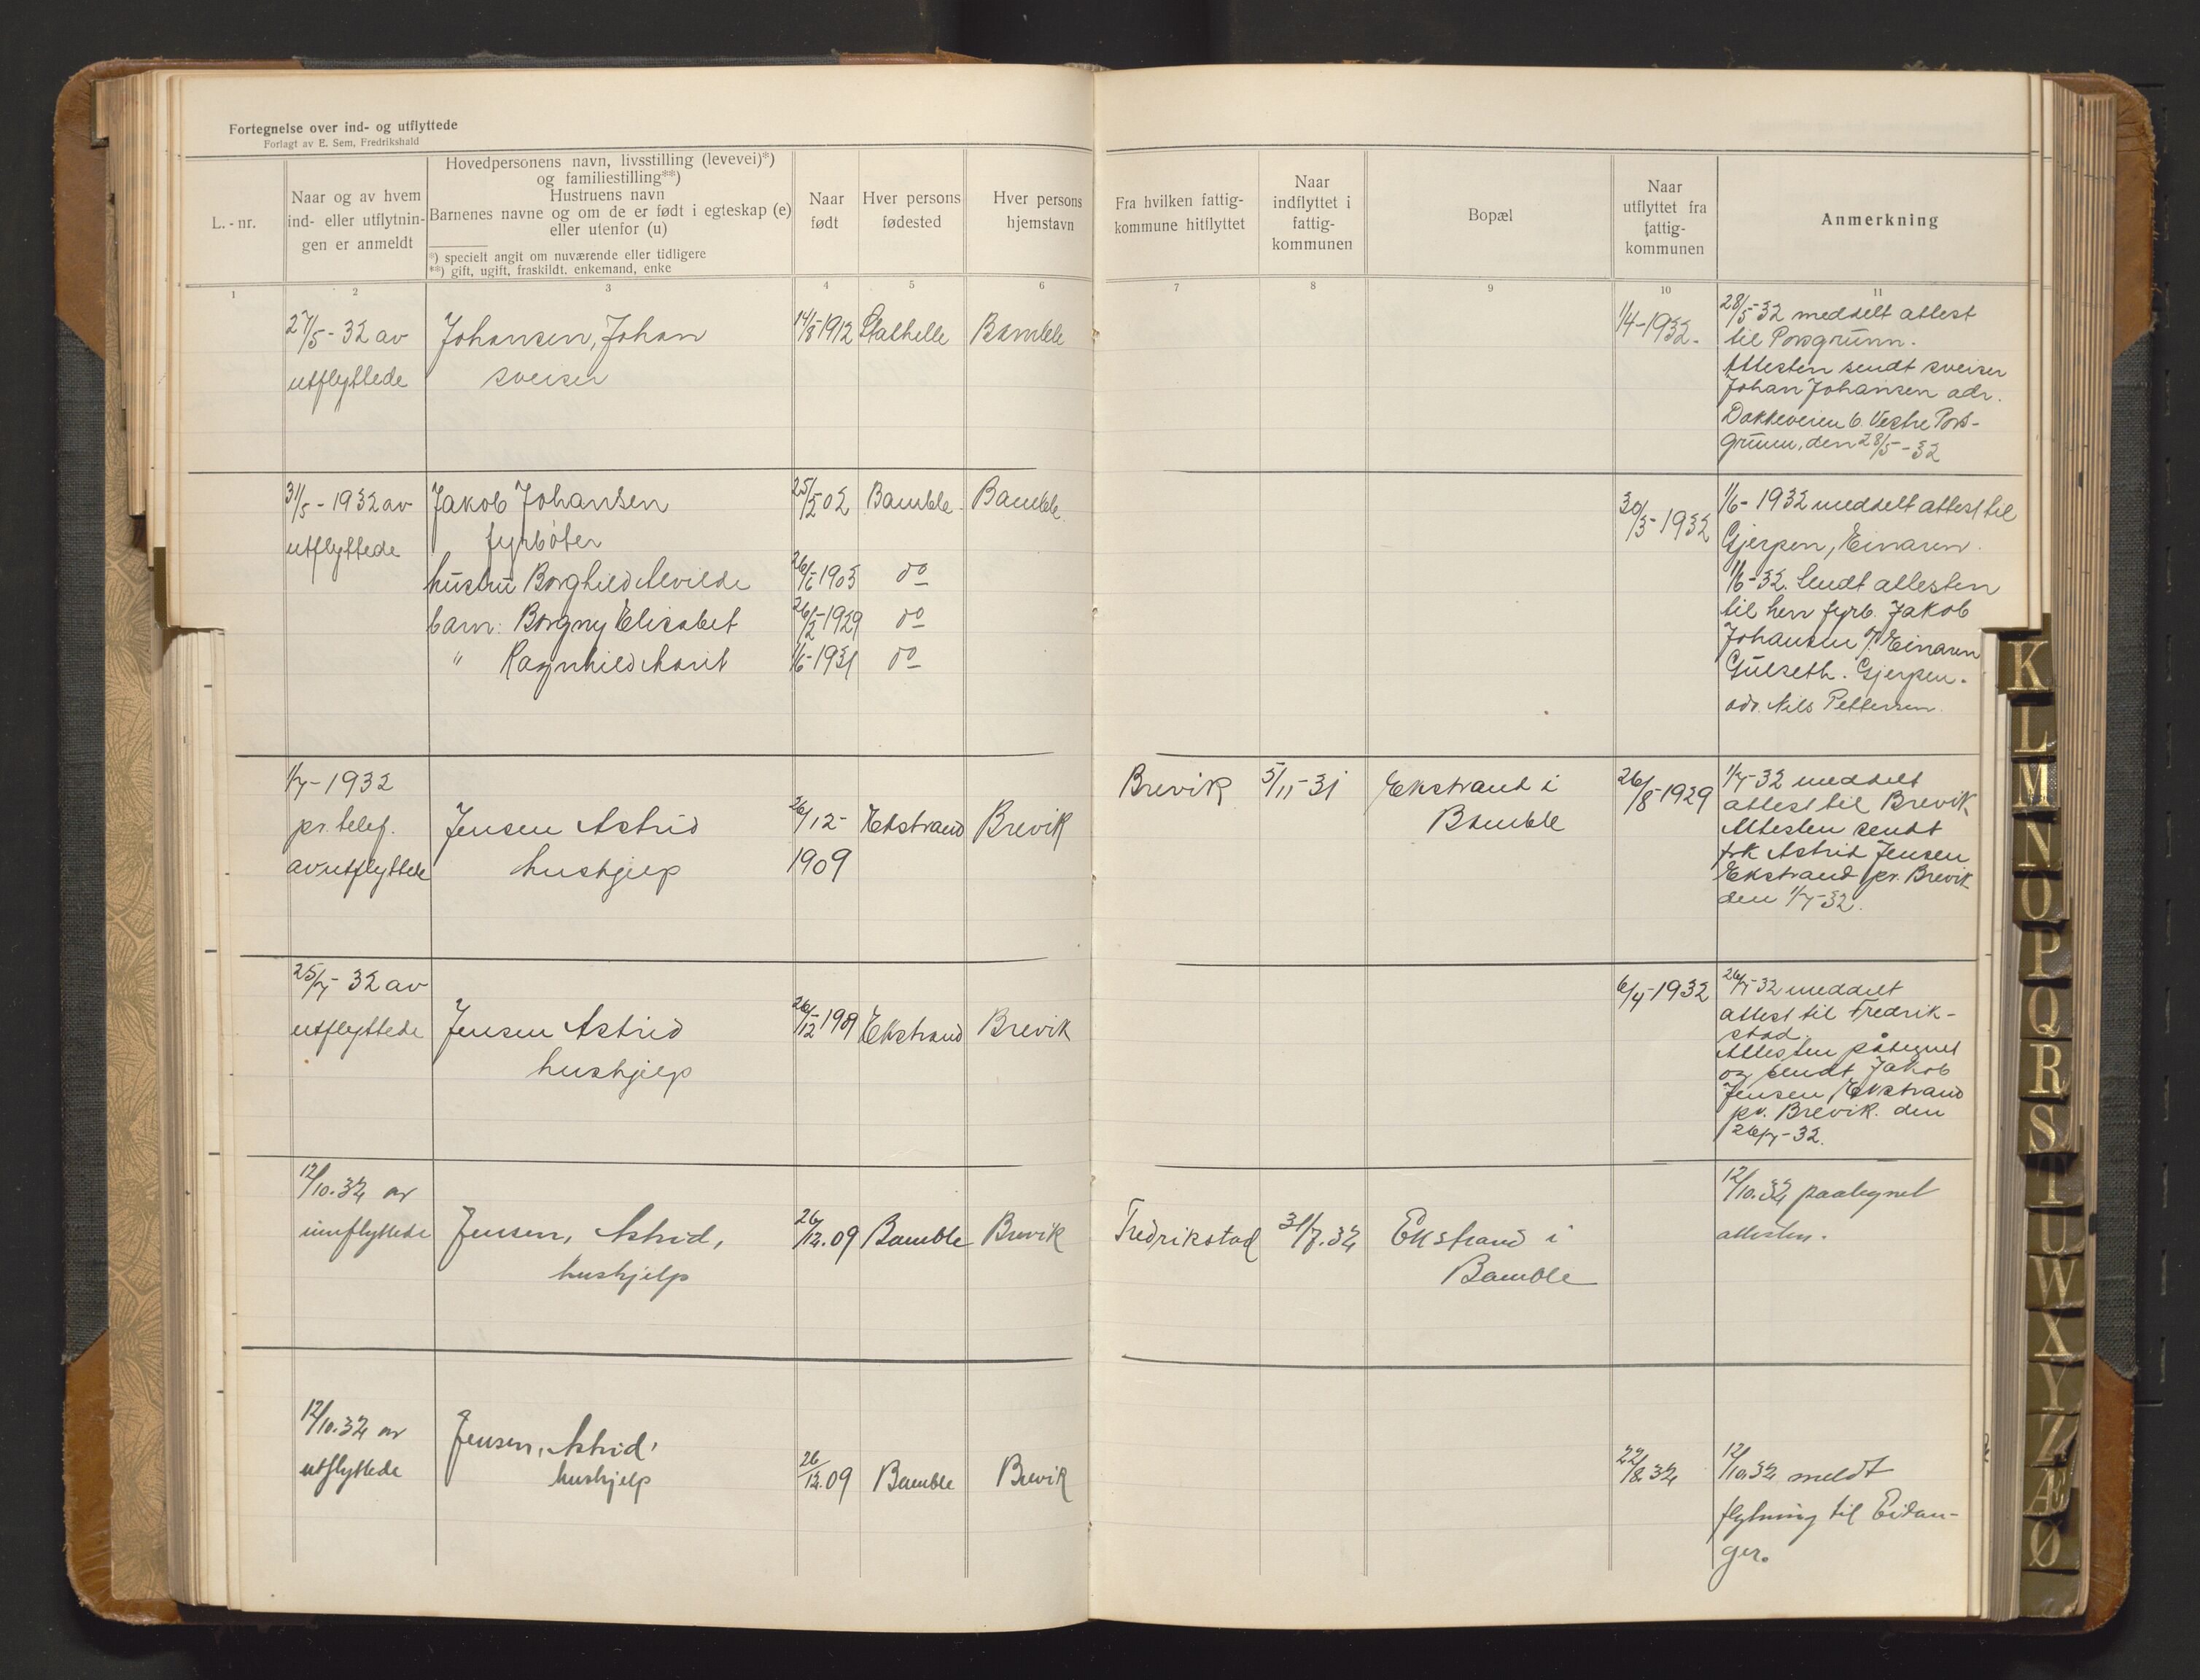 Fortegnelse over ind- og utflyttede
Forlagt av E. Sem, Fredrikshald
L.-nr.
Naar og av hvem
ind- eller utflytnin-
gen er anmeldt
Hovedpersonens navn, livsstilling (levevei)*)
og familiestilling**)
Hustruens navn
Barnenes navne og om de er født i egteskap (e)
eller utenfor (u)
*) specielt angit om nuværende eller tidligere
**) gift, ugift, fraskildt, enkemand, enke
Naar
født
Hver persons
fødested
Hver persons
hjemstavn
Fra hvilken fattig-
kommune hitflyttet
Naar
indflyttet i
fattig-
kommunen
Bopæl
Naar
utflyttet fra
fattig-
kommunen
Anmerkning
1 2 3 4 5 6 7 8 9 10 11
27/5-32 av
utflyttede
Johansen, Johan
sveiser
14/8-1912
Stathelle
Bamble
1/4-1932.
28/5-32 meddelt attest
til Porsgrunn.
Attesten sendt sveiser
Johan Johansen adr.
Dokkeveien 6. Vestre Pors-
grunn, den 28/5-32
31/5-1932 av
utflyttede
Jakob Johansen
fyrbøter
hustru Borghild Alvilde
barn: Borgny Elisabet
" Ragnhild Marit
25/2 02
26/6-1903
26/2-1929
1/6-1931
Bamble
do
do
do
Bamble
30/3-1932
1/6-1932 meddelt attest til
Gjerpen, Einaren.
1/6-32. Sendt attesten
til herr fyrb. Jakob
Johansen Einaren
Gulseth. Gjerpen.
adr. Nils Pettersen.
1/7-1932
pr. telef.
av utflyttede
Jensen Astrid
hushjelp
26/12-
1909
Ekstrand
Brevik
Brevik
5/11-31
Ekstrand i
Bamble
26/8-1929
1/7-32 meddelt
attest til Brevik
Attesten sendt
frk Astrid Jensen
Ekstrand pr. Brevik
den 1/7-32.
25/7-32 av
utflyttede
Jensen Astrid
hushjelp
26/12-1909
Ekstrand
Brevik
6/4-1932
26/7-32 meddelt
attest til Fredrik-
stad.
Attesten påtegnet
og sendt Jakob
Jensen, Ekstrand
pr. Brevik. den
26/7-32.
12/10.32 av
innflyttede
Jensen, Astrid,
hushjelp
26/12.09
Bamble
Brevik
Fredrikstad
31/7.32
Ekstrand i
Bamble
12/10.32 paategnet
attesten.
12/10.32 av
utflyttede
Jensen, Astrid,
hushjelp
26/12.09
Bamble
Brevik
22/8.32
12/10.32 meldt
flytning til Eidan-
ger.
K
L
M
N
O
P
Q
R
S
T
U
W
X
Y
Z
Æ
Ø